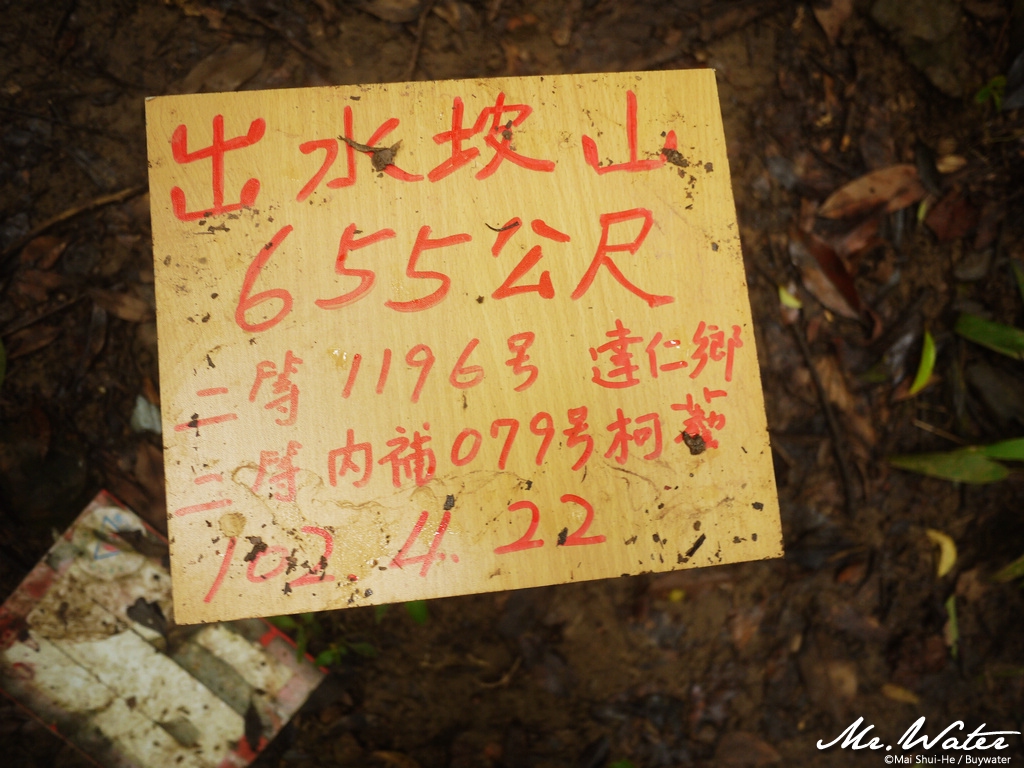 出水坡山
655公尺
二等 1196号 達仁鄉
二等 內補079号 柯
102 4. 22
Mr. Water
©Mai Shui-He / Buywater